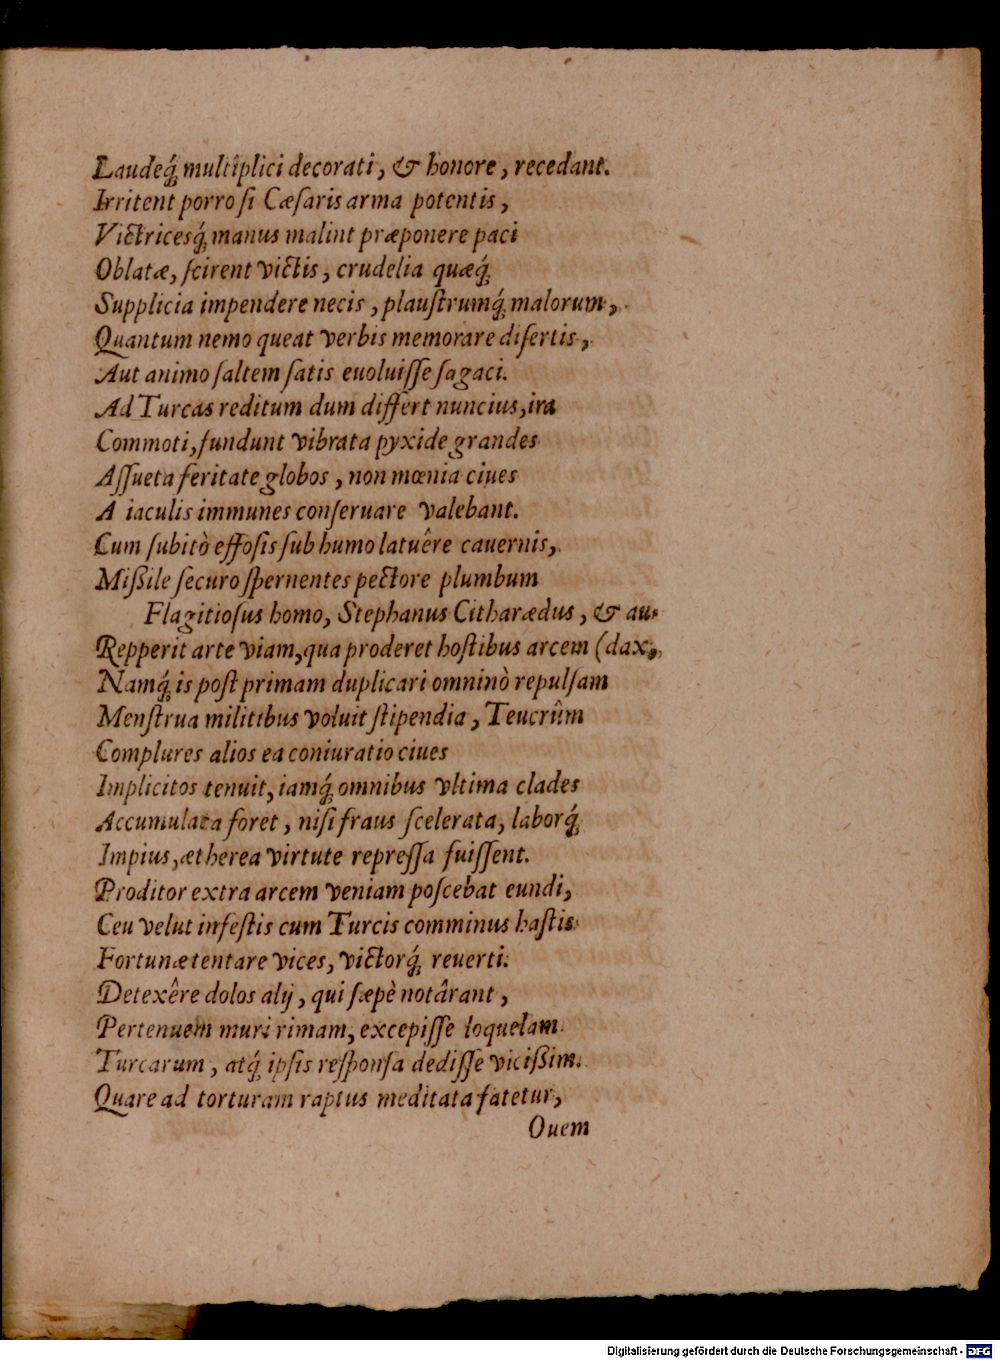 Laudeq́; multîplici decorati, & honore, recedant.
Irritent porro ſi Cæſaris arma potentis,
Victricesq́; manus malint præponere paci
Oblatæ, ſcirent victis, crudelia quæq́;
Supplicia impendere necis, plauſtrumq́; malorum,
Quantum nemo queat verbis memorare diſertis,
Aut animo ſaltem ſatis euoluiſſe ſagaci.
Ad Turcas reditum dum differt nuncius, ira
Commoti, fundunt vibrata pyxide grandes
Aſſueta feritate globos, non mœnia ciues
A iaculis immunes conſeruare valebant.
Cum ſubitò effoſis ſub humo latuêre cauernis,
Mißile ſecuro ſpernentes pectore plumbum
Flagitioſus homo, Stephanus Citharædus, & au-
Repperit arte viam, qua proderet hoſtibus arcem (dax,
Namq́; is poſt primam duplicari omninò repulſam
Menſtrua militibus voluit ſtipendia, Teucrûm
Complures alios ea coniuratio ciues
Implicitos tenuit, iamq́; omnibus vltima clades
Accumulata foret, niſi fraus ſcelerata, laborq́;
Impius, ætherea virtute repreſſa fuiſſent.
Proditor extra arcem veniam poſcebat eundi,
Ceu velut infeſtis cum Turcis comminus haſtis
Fortunæ tentare vices, victorq́; reuerti.
Detexêre dolos alij, qui ſæpè notârant,
Pertenuem muri rimam, excepiſſe loquelam
Turcarum, atq́; ipſis reſponſa dediſſe vicißim.
Quare ad torturam raptus meditata fatetur,
Quem
Digitalisierung gefördert durch die Deutsche Forschungsgemeinschaft - DFG